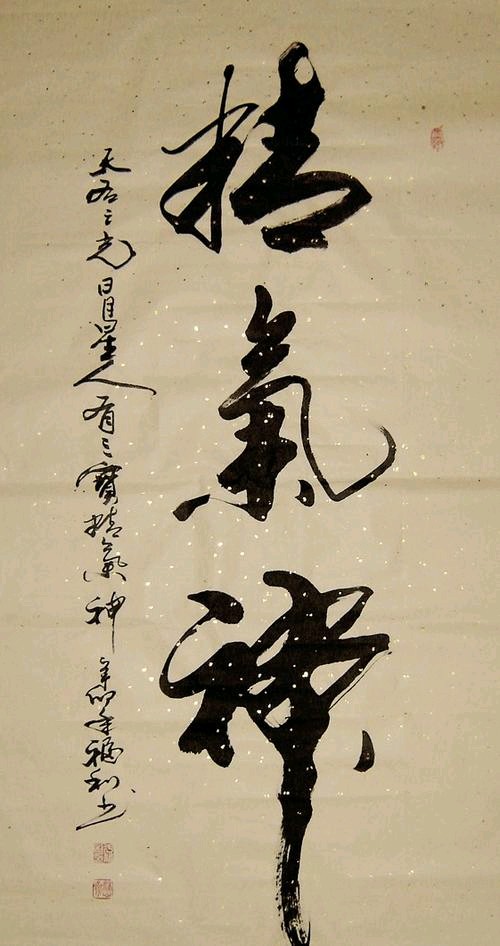 精氣神
天有三光日月星人有三寶精氣神辛卯年福利书